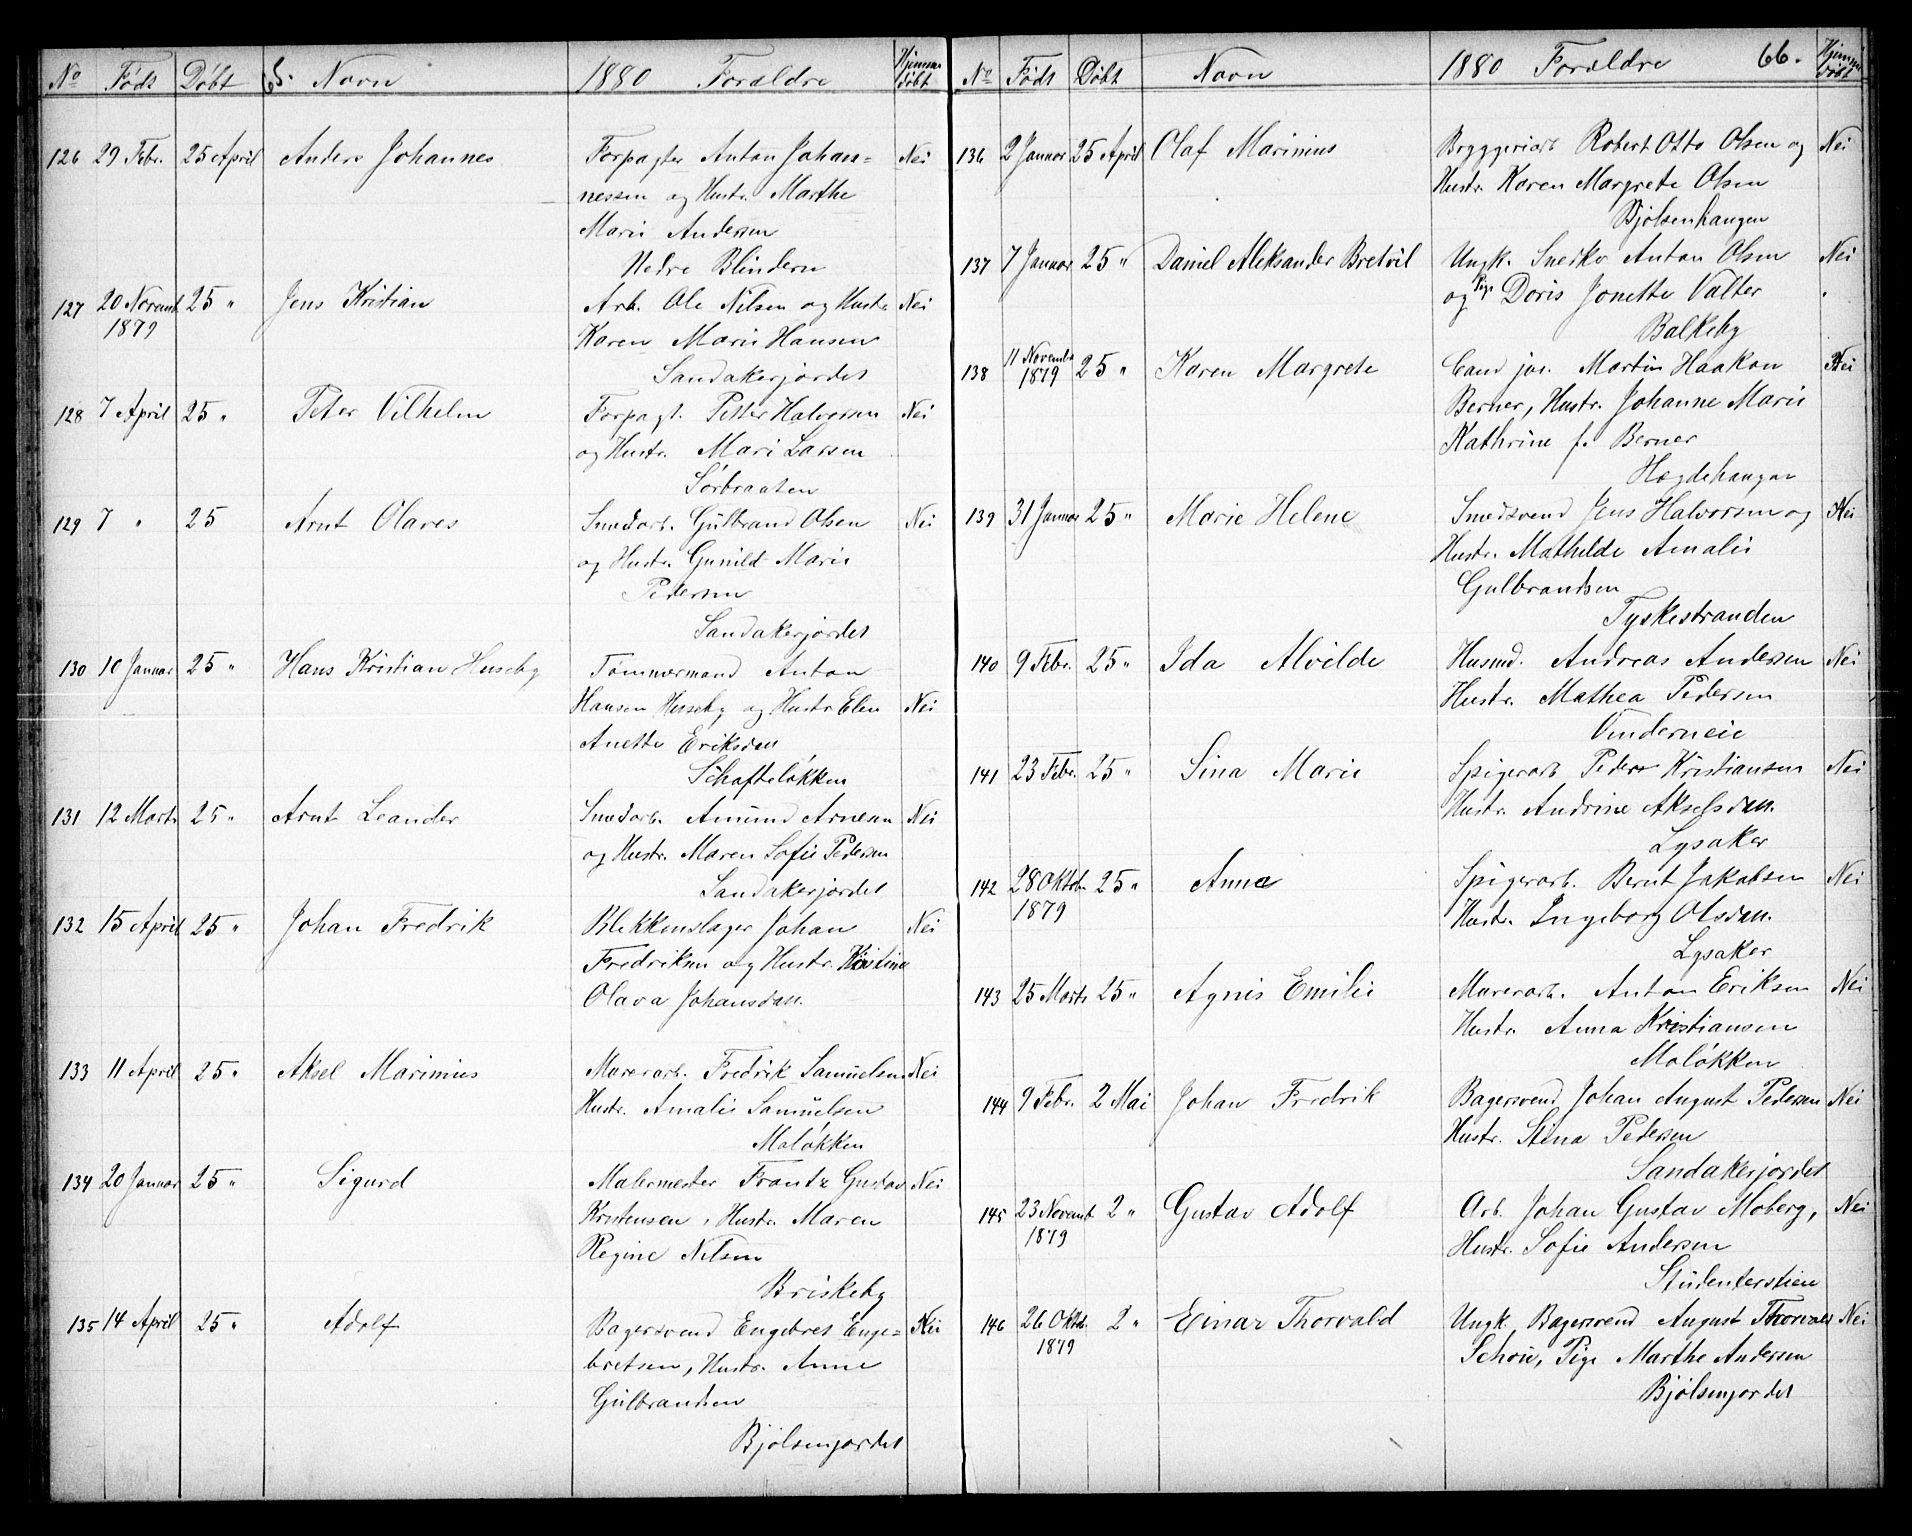 No Føds Døbt 65. Navn 1880 Forældre Hjemme døbt
126 29 Febr. 25 April Anders Johannes Forpagter Anton Johan= Nei
nessen og Hustr. Marthe
Marie Andersen
Nedre Blindern
127 20 Novemb 25 " Jens Kristian Arb. Ole Nilsen og Hustr. Nei
1879 Karen Marie Hansen
Sandakerjordet
128 7 April 25 " Peter Vilhelm Forpagt. Petter Halvorsen Nei
og Hustr. Mari Larsen
Sørbraaten
129 7 " 25 Arnt Olaves Smedarb. Gulbrand Olsen Nei
og Hustr. Gunild Marie
Pedersen
Sandakerjordet
130 10 Januar 25 " Hans Kristian Huseby Tømmermand Anton
Hansen Huseby og Hustr. Elen Nei
Anette Eriksdatt.
Schafteløkken
131 12 Marts 25 " Arnt Leander Smedarb. Amund Arnesen Nei
og Hustr. Maren Sofie Pedersen
Sandakerjordet
132 15 April 25 " Johan Fredrik Blekkenslager Johan Nei
Fredriksen og Hustr. Kristine
Olava Johansdatt.
133 11 April 25 " Aksel Marinius Murerarb. Fredrik Samuelsen Nei
Hustr. Amalie Samuelsen
Moløkken
134 20 Januar 25 " Sigurd Malermester Frantz Gustav Nei
Kristensen, Hustr. Maren
Regine Nilsen
Briskeby
135 14 April 25 " Adolf Bagersvend Engebret Enge= Nei
bretsen, Hustr. Anne
Gulbrandsen
Bjølsenjordet
No Føds Døbt Navn 1880 Forældre 66. Hjemme døbt
136 2 Januar 25 April Olaf Marinius Bryggeriarb. Robert Otto Olsen og Nei
Hustr. Karen Margrete Olsen
Bjølsenhaugen
137 7 Januar 25 " Daniel Aleksander Bretvil Ungk. Snedker Anton Olsen Nei
og Pige Doris Jonette Valter
Balkeby
138 11 Novemb 1879 25 " Karen Margrete Cand jur. Martin Haakon Nei
Berner, Hustr. Johanne Marie
Kathrine f. Berner
Hægdehaugen
139 31 Januar 25 " Marie Helene Smedsvend Jens Halvorsen og Nei
Hustr. Mathilde Amalie
Gulbrandsen
Tyskestranden
140 9 Febr. 25 " Ida Alvilde Husmd. Andreas Andersen Nei
Hustr. Mathea Pedersen
Vinderneie
141 23 Febr. 25 " Sina Marie Spigerarb Peder Kristiansen Nei
Hustr. Andrine Akselsdatt.
Lysaker
142 28 Oktob 25 " Anna Spigerarb. Bernt Jakobsen Nei
1879 Hustr. Ingeborg Olsdatt.
Lysaker
143 25 Marts 25 " Agnes Emilie Murerarb. Anton Eriksen Nei
Hustr. Anna Kristiansen
Moløkken
144 9 Febr. 2 Mai Johan Fredrik Bagersvend Johan August Pedersen Nei
Hustr. Stina Pedersen
Sandakerjordet
145 23 Novemb 2 " Gustav Adolf Arb. Johan Gustav Moberg, Nei
1879 Hustr. Sofie Andersen
Studenterstien
146 26 Oktb. 2 " Einar Thorvald Ungk. Bagersvend August Thorvald Nei
1879 Schou, Pige Marthe Andersen
Bjølsenjordet